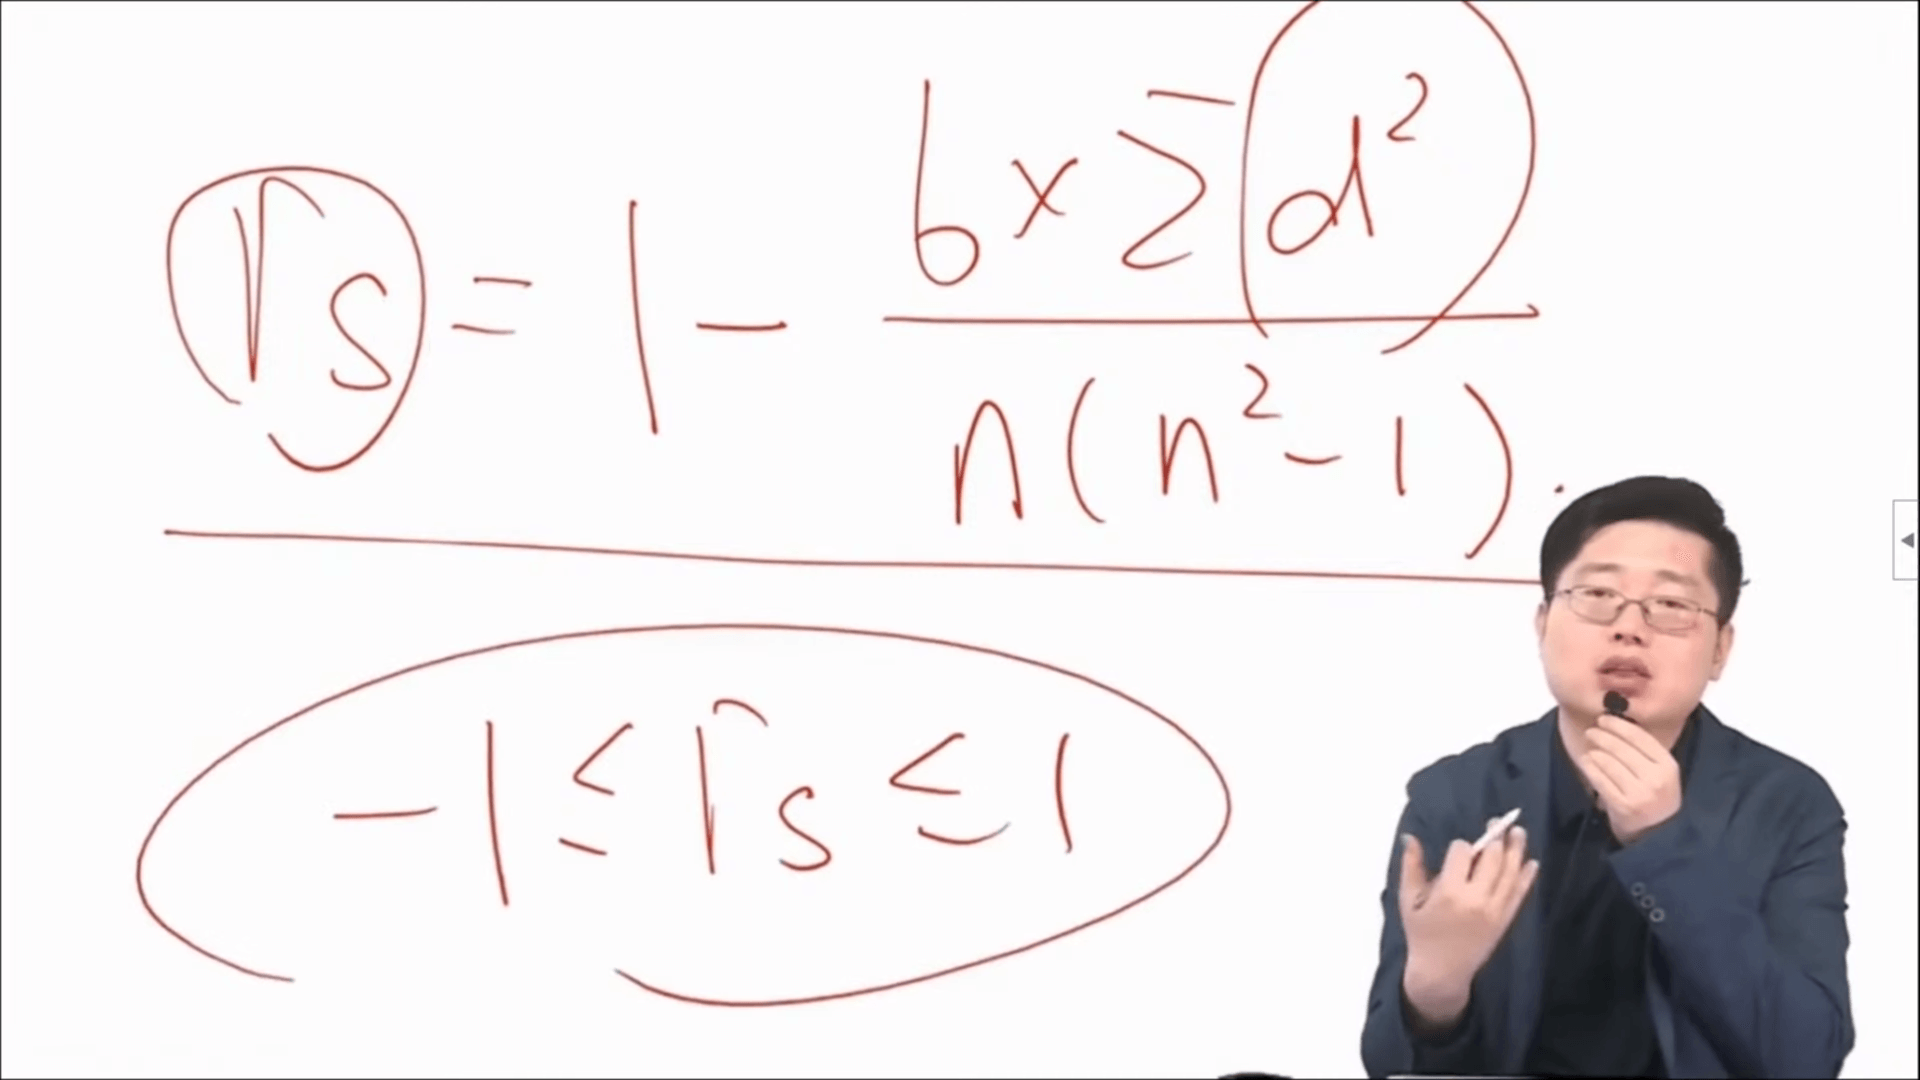 rs = 1 - 6 × Σ d² / n(n² - 1).
-1 ≤ rs ≤ 1